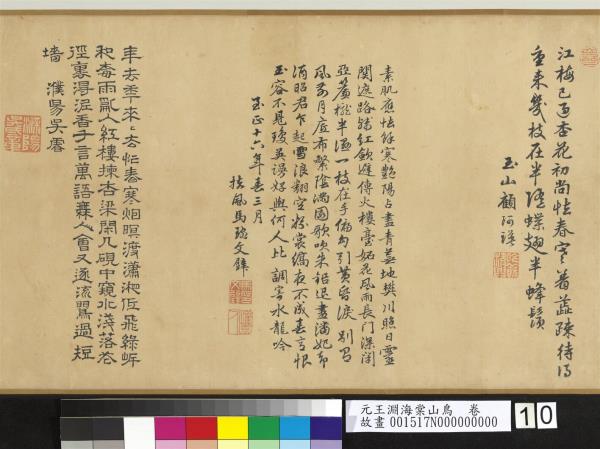 江梅已過杏花初尚怯春寒著蕊疎待得
重來幾枝在半隨蝶翅半蜂鬚
玉山顧阿瑛
素肌應怯餘寒艷陽占盡青蕪地樊川照日靈
關遮路殘紅斂避傳火樓臺妬花風雨長門深閉
亞簾櫳半濕一枝在手偏勾引黃昏淚 別有
風前月底布繁陰滿園歌吹朱鉛退盡潘妃却
酒昭君乍起雪浪翻空粉裳縞夜不成春意恨
玉容不見瓊英謾好與何人比 調寄水龍吟
至正十六年春三月
扶風馬琬文璧
年去年來〻去忙春寒烟暝渡瀟湘低飛綠岸
和春雨亂入紅樓揀杏梁閑几硯中窺水淺落花
徑裏得泥香千言萬語無人會又逐流鶯過短
墻 濮陽吳睿
元王淵海棠山鳥 卷
故畫 001517N000000000
10